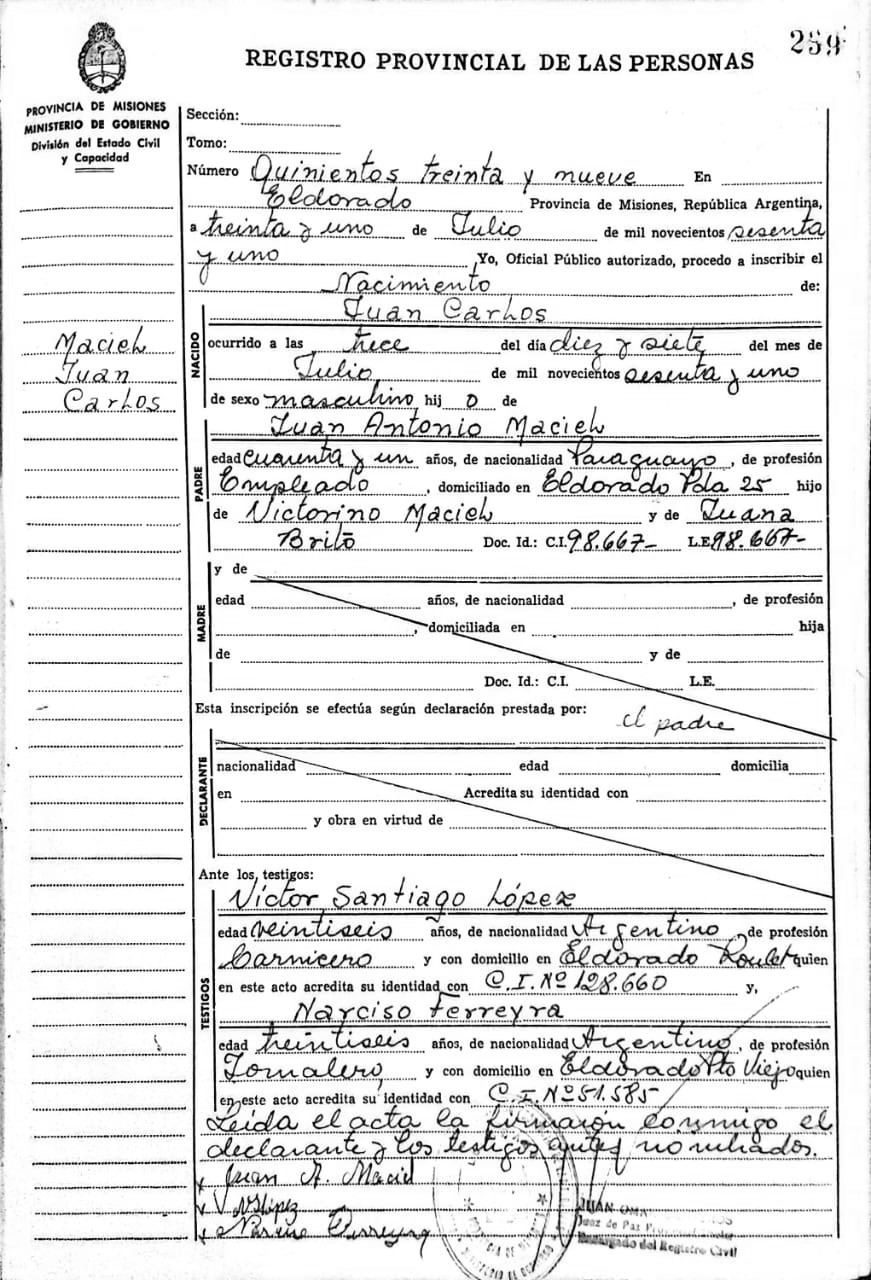 259
REGISTRO PROVINCIAL DE LAS PERSONAS
PROVINCIA DE MISIONES
MINISTERIO DE GOBIERNO
División del Estado Civil
y Capacidad
Sección:
Tomo:
Número Quinientos treinta y nueve En
Eldorado Provincia de Misiones, República Argentina,
a treinta y uno de Julio de mil novecientos sesenta
y uno ,Yo, Oficial Público autorizado, procedo a inscribir el
Nacimiento de:
Maciel
Juan
Carlos
NACIDO
Juan Carlos
ocurrido a las trece del día diez y siete del mes de
Julio de mil novecientos sesenta y uno
de sexo masculino hij o de
PADRE
Juan Antonio Maciel
edad cuarenta y un años, de nacionalidad Paraguayo, de profesión
Empleado, domiciliado en Eldorado Pda 25 hijo
de Victorino Maciel y de Juana
Brito Doc. Id.: C.I. 98.667- L.E. 98.667-
MADRE
y de
edad años, de nacionalidad , de profesión
, domiciliada en hija
de y de
Doc. Id.: C.I. L.E.
Esta inscripción se efectúa según declaración prestada por: el padre
DECLARANTE
nacionalidad edad domicilia
en Acredita su identidad con
y obra en virtud de
Ante los testigos:
TESTIGOS
Víctor Santiago López
edad veintiseis años, de nacionalidad Argentino, de profesión
Carnicero y con domicilio en Eldorado quien
en este acto acredita su identidad con C.I. Nº 128.660 y,
Narciso Ferreyra
edad treintiseis años, de nacionalidad Argentino, de profesión
Jornalero, y con domicilio en Eldorado Pto Viejo quien
en este acto acredita su identidad con C.I. Nº 51.585
Leída el acta la firmaron conmigo el
declarante y los testigos antes nombrados.
Juan A. Maciel
López
Ferreyra
JUAN
Juez de Paz
Encargado del Registro Civil